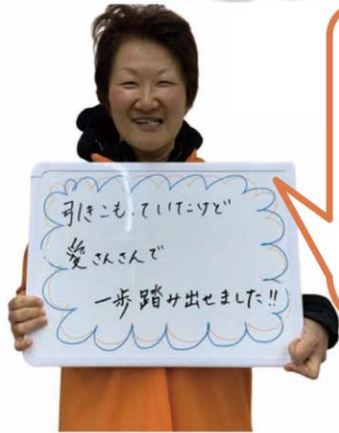 引きこもっていたけど
愛さんさんで
一歩踏み出せました!!